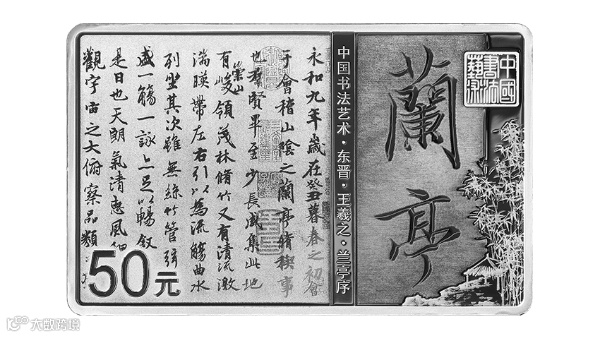 中國書法藝術
蘭亭
中国书法艺术·东晋·王羲之·兰亭序
永和九年歲在癸丑暮春之初會
于會稽山陰之蘭亭脩稧事
也羣賢畢至少長咸集此地
有崇山峻領茂林脩竹又有清流激
湍暎帶左右引以為流觴曲水
列坐其次雖無絲竹管弦
盛一觴一詠亦足以暢叙
是日也天朗氣清惠風
觀宇宙之大俯察品類
50元
大欧跨境